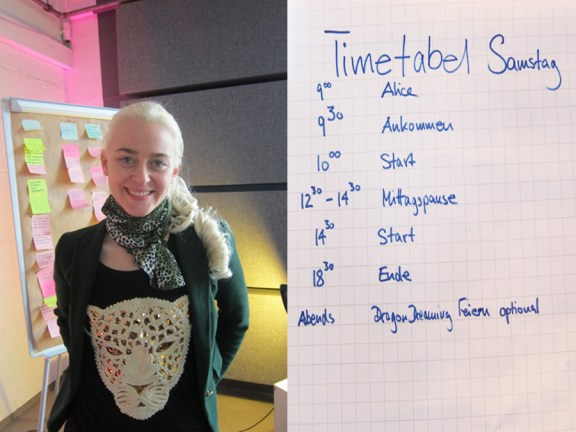 Timetabel Samstag
9⁰⁰ Alice
9³⁰ Ankommen
10⁰⁰ Start
12³⁰ - 14³⁰ Mittagspause
14³⁰ Start
18³⁰ Ende
Abends DragonDreaming Feiern optional